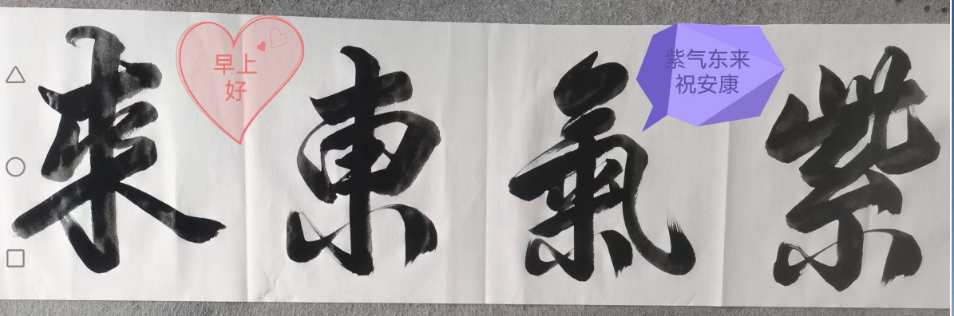 紫氣東來
早上
好
紫气东来
祝安康